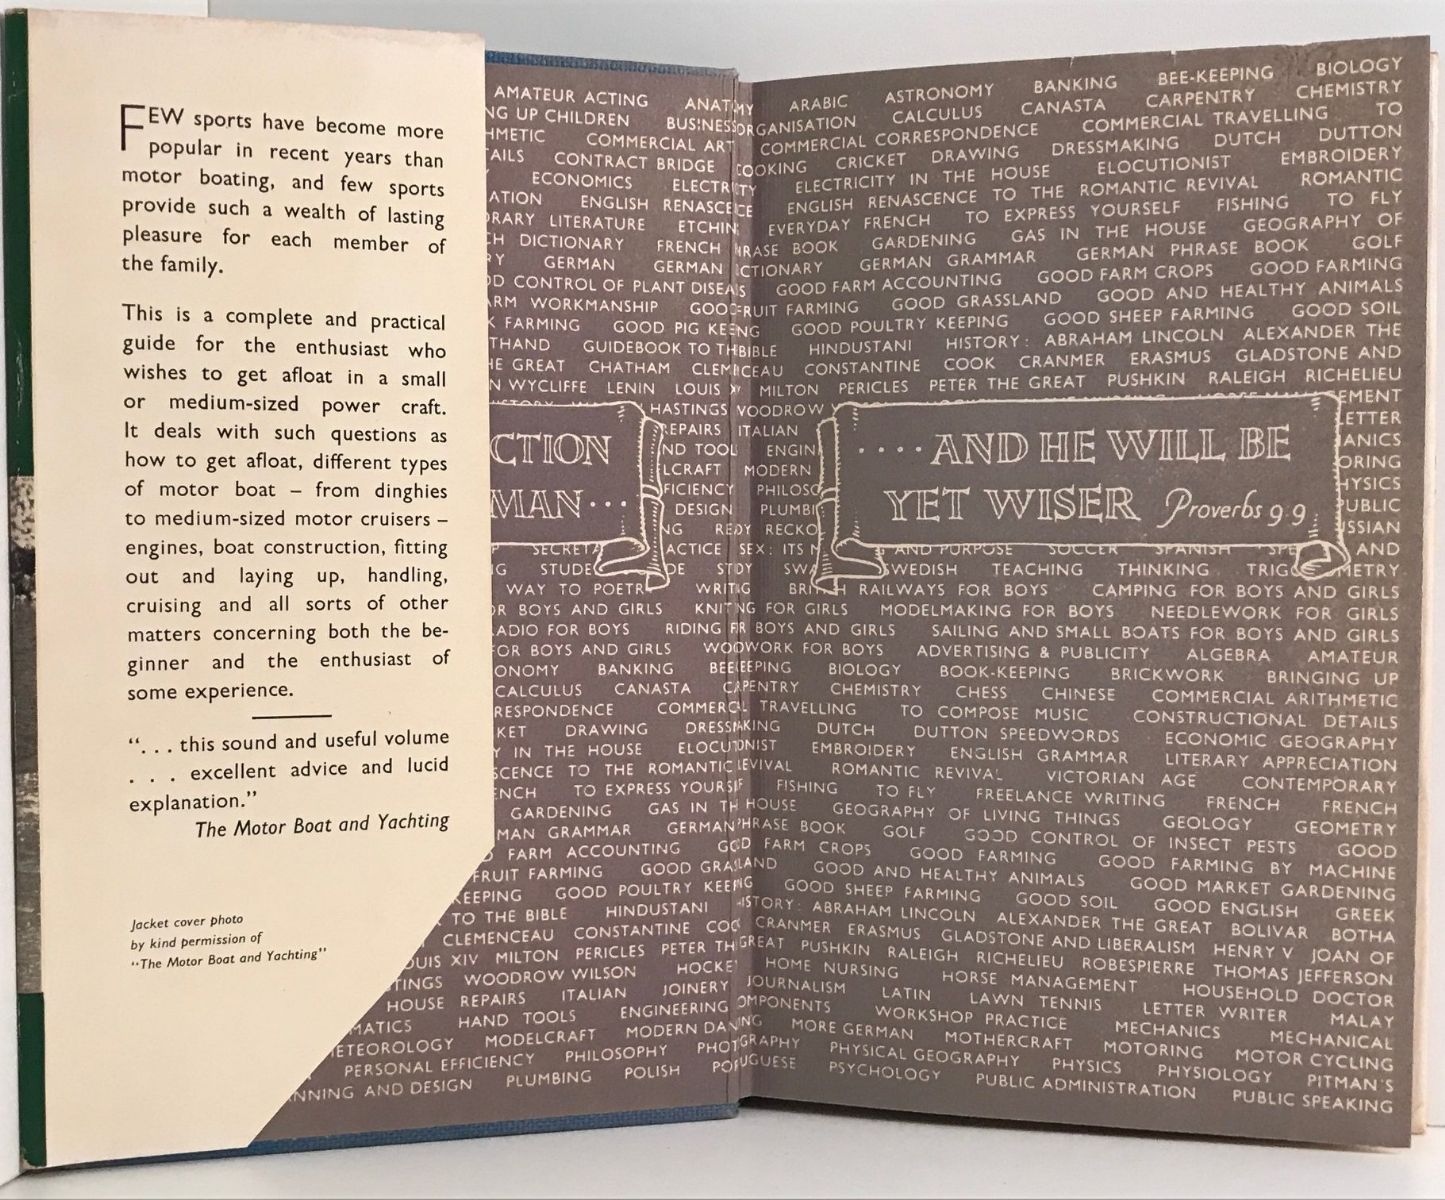 FEW sports have become more
popular in recent years than
motor boating, and few sports
provide such a wealth of lasting
pleasure for each member of
the family.
This is a complete and practical
guide for the enthusiast who
wishes to get afloat in a small
or medium-sized power craft.
It deals with such questions as
how to get afloat, different types
of motor boat – from dinghies
to medium-sized motor cruisers –
engines, boat construction, fitting
out and laying up, handling,
cruising and all sorts of other
matters concerning both the be-
ginner and the enthusiast of
some experience.
“. . . this sound and useful volume
. . . excellent advice and lucid
explanation.”
The Motor Boat and Yachting
Jacket cover photo
by kind permission of
“The Motor Boat and Yachting”
AMATEUR ACTING
NG UP CHILDREN BUSINESS
HMETIC COMMERCIAL ART
AILS CONTRACT BRIDGE
ECONOMICS
ATION ENGLISH
RARY LITERATURE
CH DICTIONARY FRENCH
RY GERMAN GERMAN
OD CONTROL OF PLANT
ARM WORKMANSHIP
K FARMING GOOD PIG
THAND GUIDEBOOK TO
HE GREAT CHATHAM
N WYCLIFFE LENIN LOUIS
HASTINGS
REPAIRS
ND TOOL
LCRAFT
FICIENCY
DESIGN
CTION
MAN···
WAY TO POETR
R BOYS AND GIRLS
ADIO FOR BOYS RIDING
FOR BOYS AND GIRLS
ONOMY BANKING
CALCULUS CANASTA
RESPONDENCE
KET DRAWING
Y IN THE HOUSE
SCENCE TO THE ROMANTIC
ENCH TO EXPRESS
GARDENING GAS IN
MAN GRAMMAR GERMAN
FARM ACCOUNTING
FRUIT FARMING GOOD
KEEPING GOOD POULTRY
TO THE BIBLE HINDUSTANI
CLEMENCEAU CONSTANTINE
OUIS XIV MILTON PERICLES PETER
TINGS WOODROW WILSON
HOUSE REPAIRS ITALIAN JOINERY
MATICS HAND TOOLS ENGINEERING
ETEOROLOGY MODELCRAFT MODERN
PERSONAL EFFICIENCY PHILOSOPHY
NNING AND DESIGN PLUMBING POLISH
ARABIC ASTRONOMY BANKING BEE-KEEPING BIOLOGY
ORGANISATION CALCULUS CANASTA CARPENTRY CHEMISTRY
COMMERCIAL CORRESPONDENCE COMMERCIAL TRAVELLING TO
COOKING CRICKET DRAWING DRESSMAKING DUTCH DUTTON
ELECTRICITY IN THE HOUSE ELOCUTIONIST EMBROIDERY
ENGLISH RENASCENCE TO THE ROMANTIC REVIVAL ROMANTIC
EVERYDAY FRENCH TO EXPRESS YOURSELF FISHING TO FLY
RASE BOOK GARDENING GAS IN THE HOUSE GEOGRAPHY OF
CTIONARY GERMAN GRAMMAR GERMAN PHRASE BOOK GOLF
GOOD FARM ACCOUNTING GOOD FARM CROPS GOOD FARMING
FRUIT FARMING GOOD GRASSLAND GOOD AND HEALTHY ANIMALS
GOOD POULTRY KEEPING GOOD SHEEP FARMING GOOD SOIL
BIBLE HINDUSTANI HISTORY: ABRAHAM LINCOLN ALEXANDER THE
CEAU CONSTANTINE COOK CRANMER ERASMUS GLADSTONE AND
MILTON PERICLES PETER THE GREAT PUSHKIN RALEIGH RICHELIEU
WOODROW
ITALIAN
ENGIN
MODERN
PHILOSO
PLUMBI
RECKO
····AND HE WILL BE
YET WISER Proverbs 9·9
EMENT
ETTER
ANICS
ORING
HYSICS
PUBLIC
SSIAN
AND PURPOSE SOCCER SPANISH SPE AND
WEDISH TEACHING THINKING TRIG METRY
RAILWAYS FOR BOYS CAMPING FOR BOYS AND GIRLS
NG FOR GIRLS MODELMAKING FOR BOYS NEEDLEWORK FOR GIRLS
BOYS AND GIRLS SAILING AND SMALL BOATS FOR BOYS AND GIRLS
WORK FOR BOYS ADVERTISING & PUBLICITY ALGEBRA AMATEUR
EEPING BIOLOGY BOOK-KEEPING BRICKWORK BRINGING UP
PENTRY CHEMISTRY CHESS CHINESE COMMERCIAL ARITHMETIC
TRAVELLING TO COMPOSE MUSIC CONSTRUCTIONAL DETAILS
KING DUTCH DUTTON SPEEDWORDS ECONOMIC GEOGRAPHY
NIST EMBROIDERY ENGLISH GRAMMAR LITERARY APPRECIATION
EVIVAL ROMANTIC REVIVAL VICTORIAN AGE CONTEMPORARY
FISHING TO FLY FREELANCE WRITING FRENCH FRENCH
HOUSE GEOGRAPHY OF LIVING THINGS GEOLOGY GEOMETRY
PHRASE BOOK GOLF GOOD CONTROL OF INSECT PESTS GOOD
FARM CROPS GOOD FARMING GOOD FARMING BY MACHINE
LAND GOOD AND HEALTHY ANIMALS GOOD MARKET GARDENING
GOOD SHEEP FARMING GOOD SOIL GOOD ENGLISH GREEK
ISTORY: ABRAHAM LINCOLN ALEXANDER THE GREAT BOLIVAR BOTHA
CRANMER ERASMUS GLADSTONE AND LIBERALISM HENRY V JOAN OF
GREAT PUSHKIN RALEIGH RICHELIEU ROBESPIERRE THOMAS JEFFERSON
HOME NURSING HORSE MANAGEMENT HOUSEHOLD DOCTOR
JOURNALISM LATIN LAWN TENNIS LETTER WRITER MALAY
OMPONENTS WORKSHOP PRACTICE MECHANICS MECHANICAL
MORE GERMAN MOTHERCRAFT MOTORING MOTOR CYCLING
GRAPHY PHYSICAL GEOGRAPHY PHYSICS PHYSIOLOGY PITMAN'S
UGUESE PSYCHOLOGY PUBLIC ADMINISTRATION PUBLIC SPEAKING